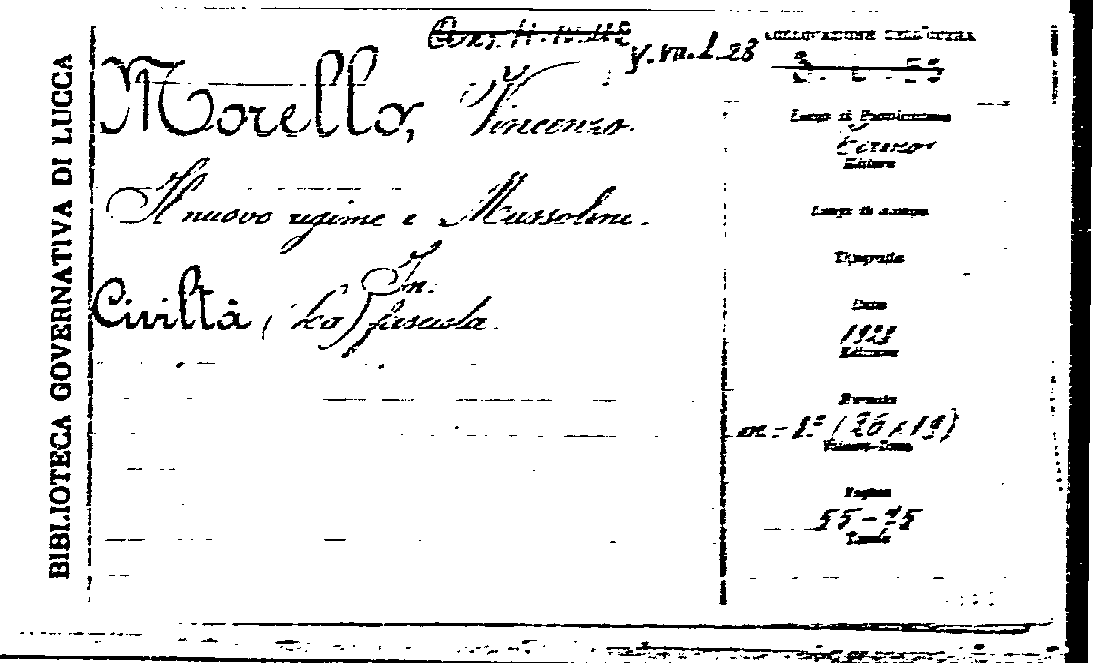 BIBLIOTECA GOVERNATIVA DI LUCCA
Y. VII. L. 28
COLLOCAZIONE DELL'OPERA
Morello, Vincenzo.
Il nuovo regime e Mussolini.
In:
Civiltà (La) fascista.
Luogo di Pubblicazione
Torino
Editore
Luogo di stampa
Tipografia
Data
1928
Edizione
Formato
in-1° (26 x 19)
Volume-Tomo
Pagine
55-75
Tavole